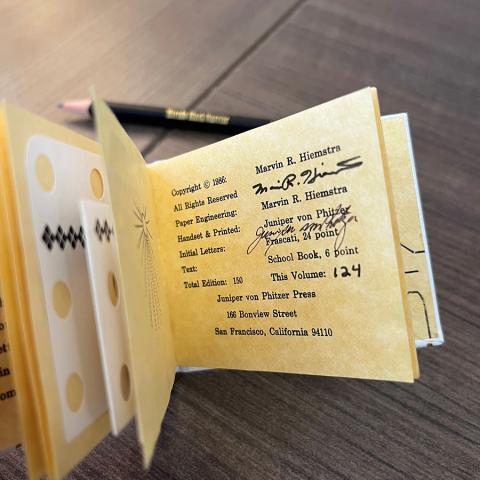 Copyright © 1986: Marvin R. Hiemstra
All Rights Reserved
Paper Engineering: Marvin R. Hiemstra
Handset & Printed: Juniper von Phitzer
Initial Letters: Frascati, 24 point
Text: School Book, 6 point
Total Edition: 150 This Volume: 124
Juniper von Phitzer Press
166 Bonview Street
San Francisco, California 94110